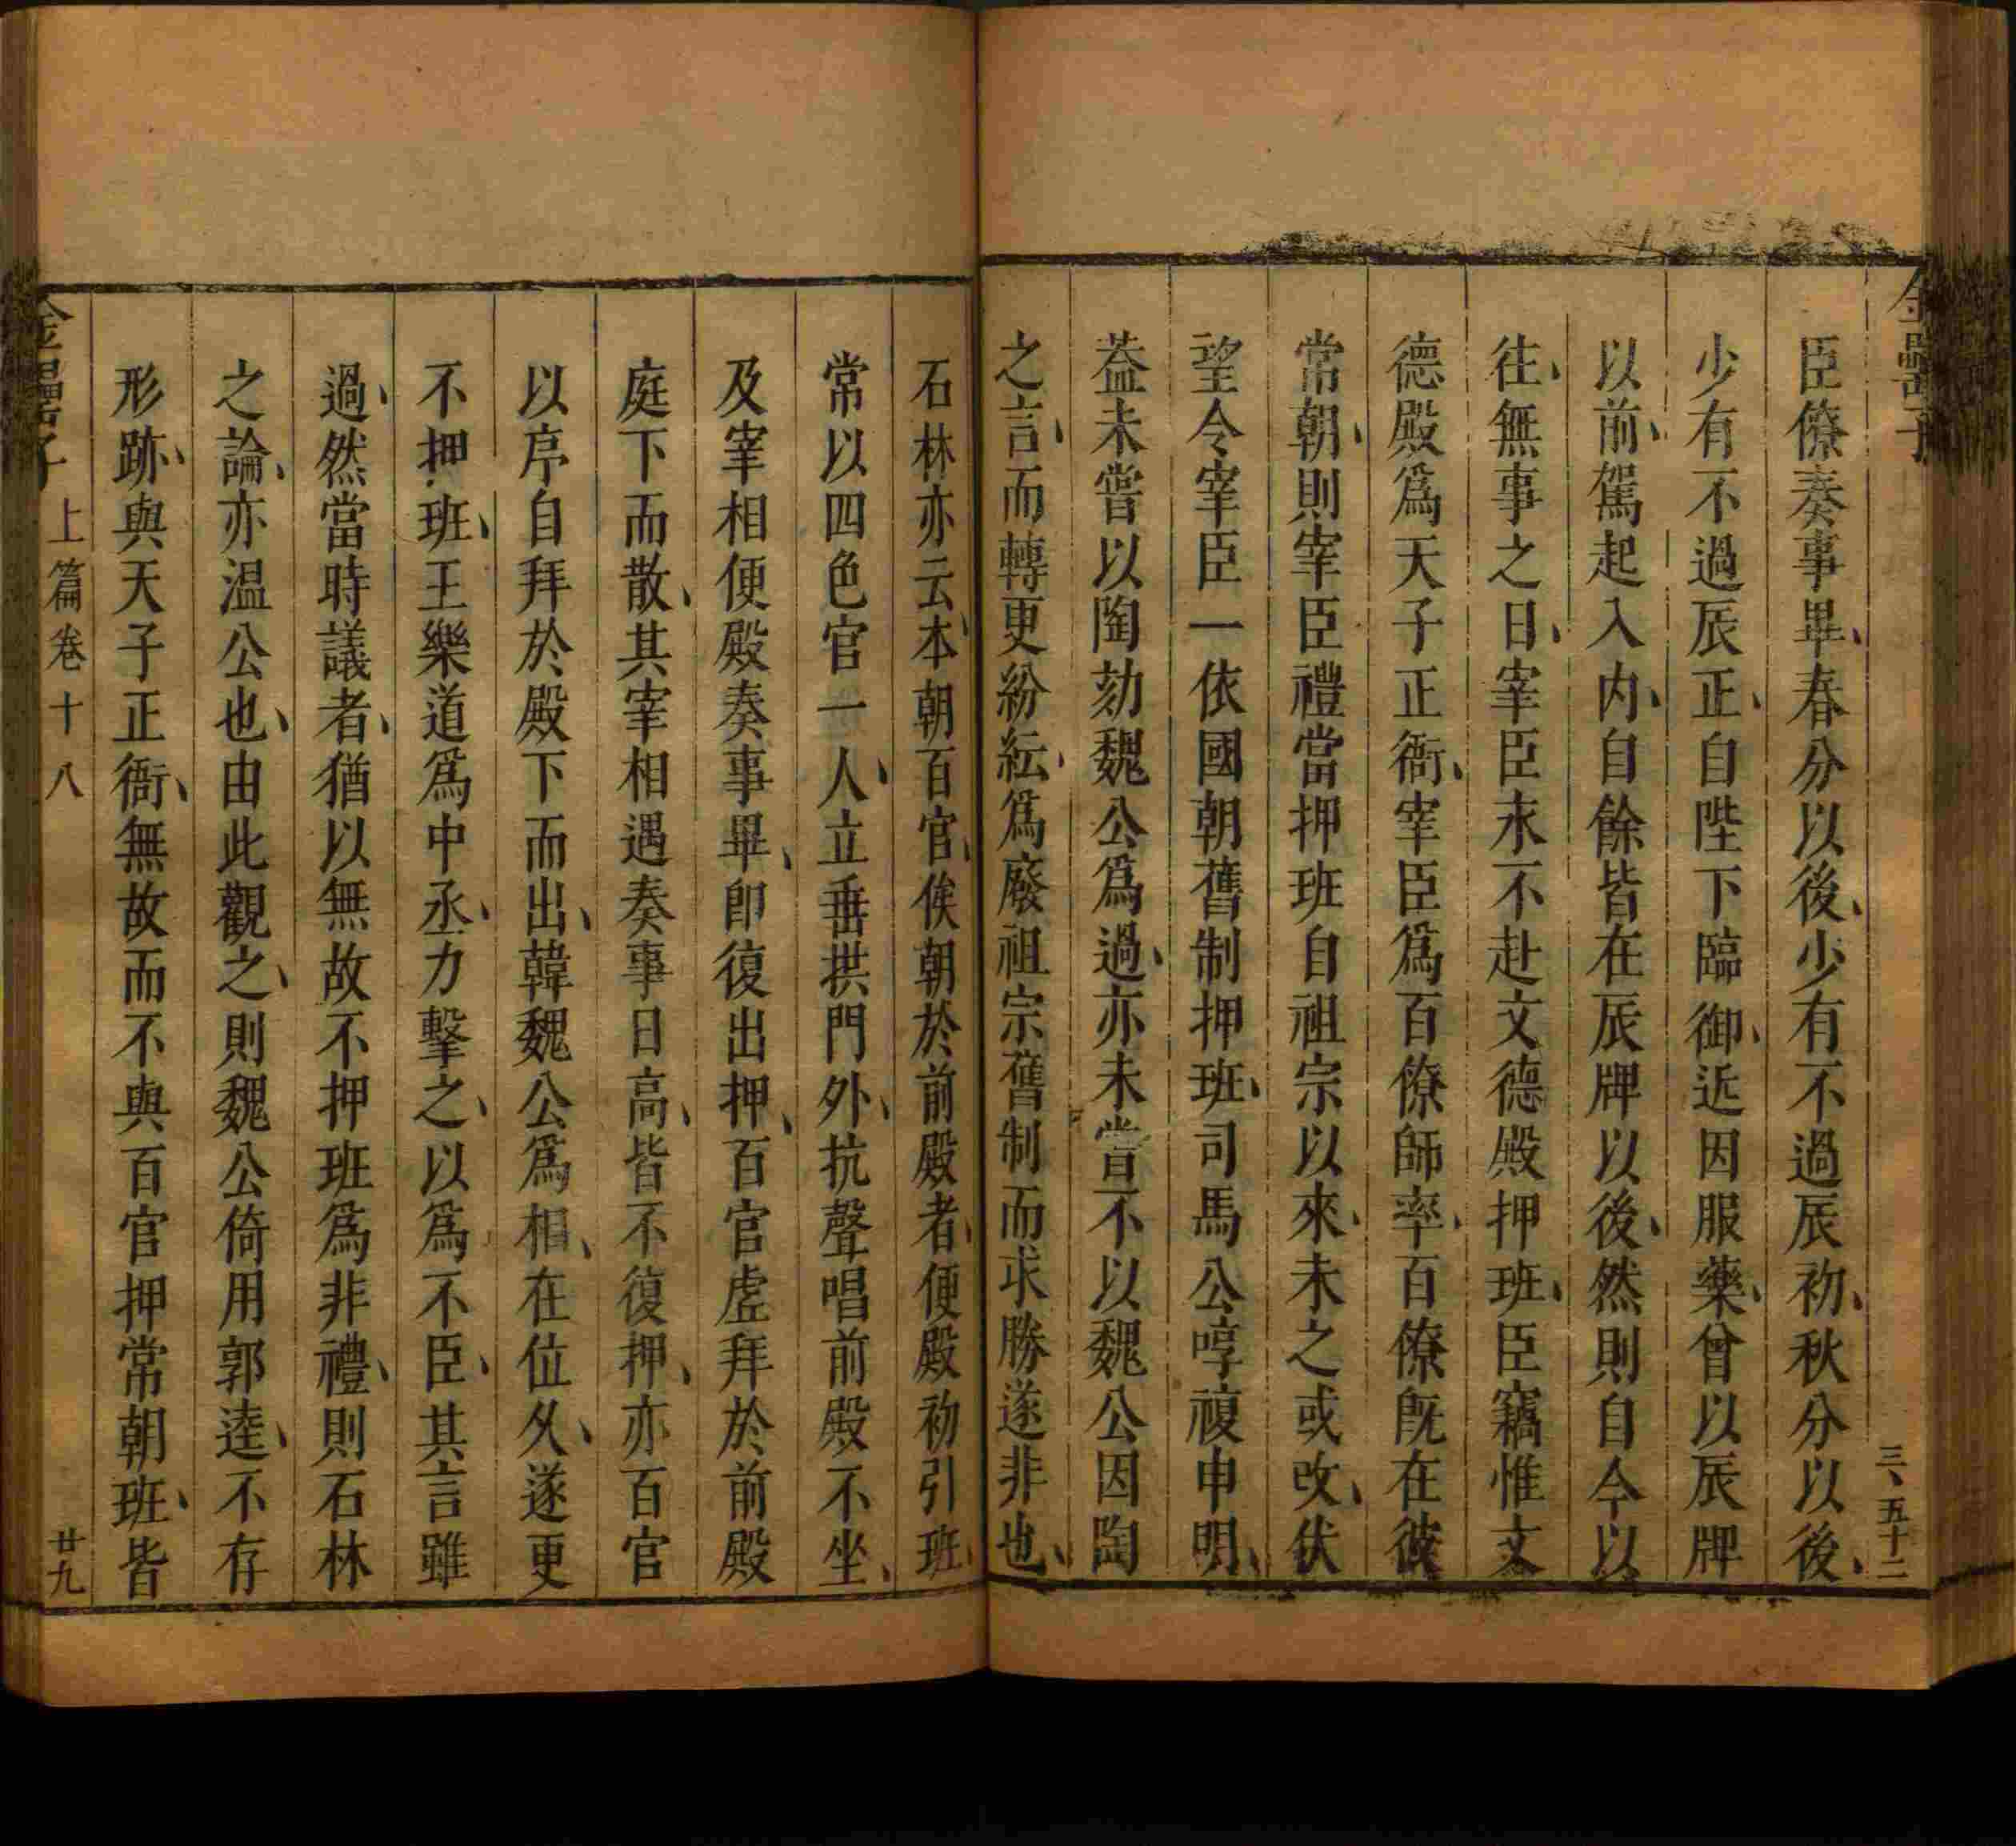 臣僚奏事畢、春分以後、少有不過辰初、秋分以後、
少有不過辰正、自陛下臨御、近因服藥、曾以辰牌
以前、駕起入内、自餘皆在辰牌以後、然則自今以
往、無事之日、宰臣永不赴文德殿押班、臣竊惟文
德殿爲天子正衙、宰臣爲百僚師率、百僚既在彼
常朝、則宰臣禮當押班自祖宗以來、未之或改、伏
望令宰臣一依國朝舊制押班、司馬公哼複申明、
葢未嘗以陶劾魏公爲過、亦未嘗不以魏公因陶
之言、而轉更紛紜、爲廢祖宗舊制而求勝遂非也、
三、五十二
石林亦云、本朝百官、俟朝於前殿者、便殿初引班、
常以四色官一人、立垂拱門外、抗聲唱前殿不坐、
及宰相便殿奏事畢、即復出押、百官虛拜於前殿
庭下而散、其宰相遇奏事日高、皆不復押、亦百官
以序自拜於殿下而出、韓魏公爲相、在位久、遂更
不押班、王樂道爲中丞、力擊之、以爲不臣、其言雖
過、然當時議者、猶以無故不押班爲非禮、則石林
之論、亦温公也、由此觀之、則魏公倚用郭逵、不存
形跡、與天子正衙、無故而不與百官押常朝班、皆
金罍子 上篇卷十八 廿九